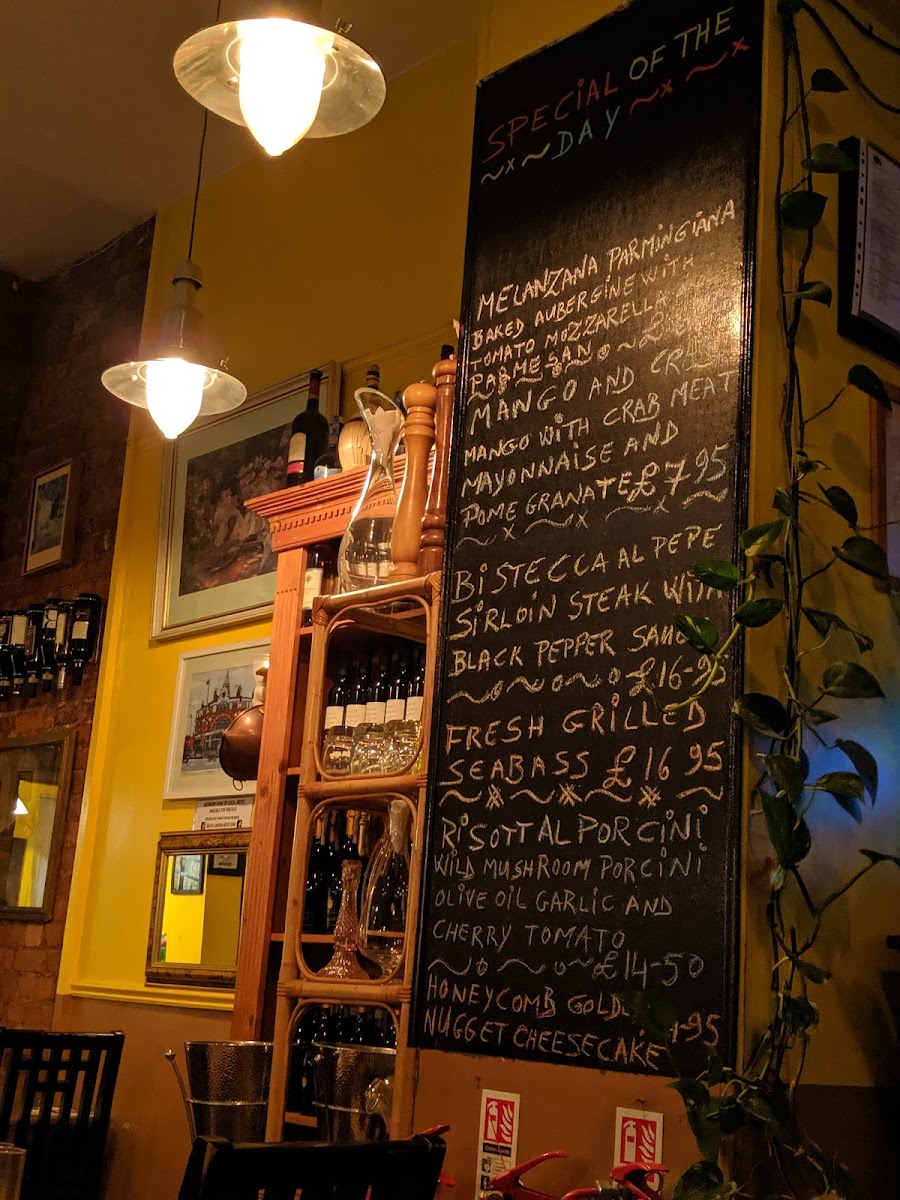 SPECIAL OF THE
DAY
MELANZANA PARMINGIANA
BAKED AUBERGINE WITH
TOMATO MOZZARELLA
PARMESAN £
MANGO AND
MANGO WITH CRAB MEAT
MAYONNAISE AND
POMEGRANATE £7.95
BISTECCA AL PEPE
SIRLOIN STEAK WITH
BLACK PEPPER
£16-95
FRESH GRILLED
SEABASS £16 95
RISOTT AL PORCINI
WILD MUSHROOM PORCINI
OLIVE OIL GARLIC AND
CHERRY TOMATO
£14-50
HONEYCOMB
NUGGET CHEESECAKE